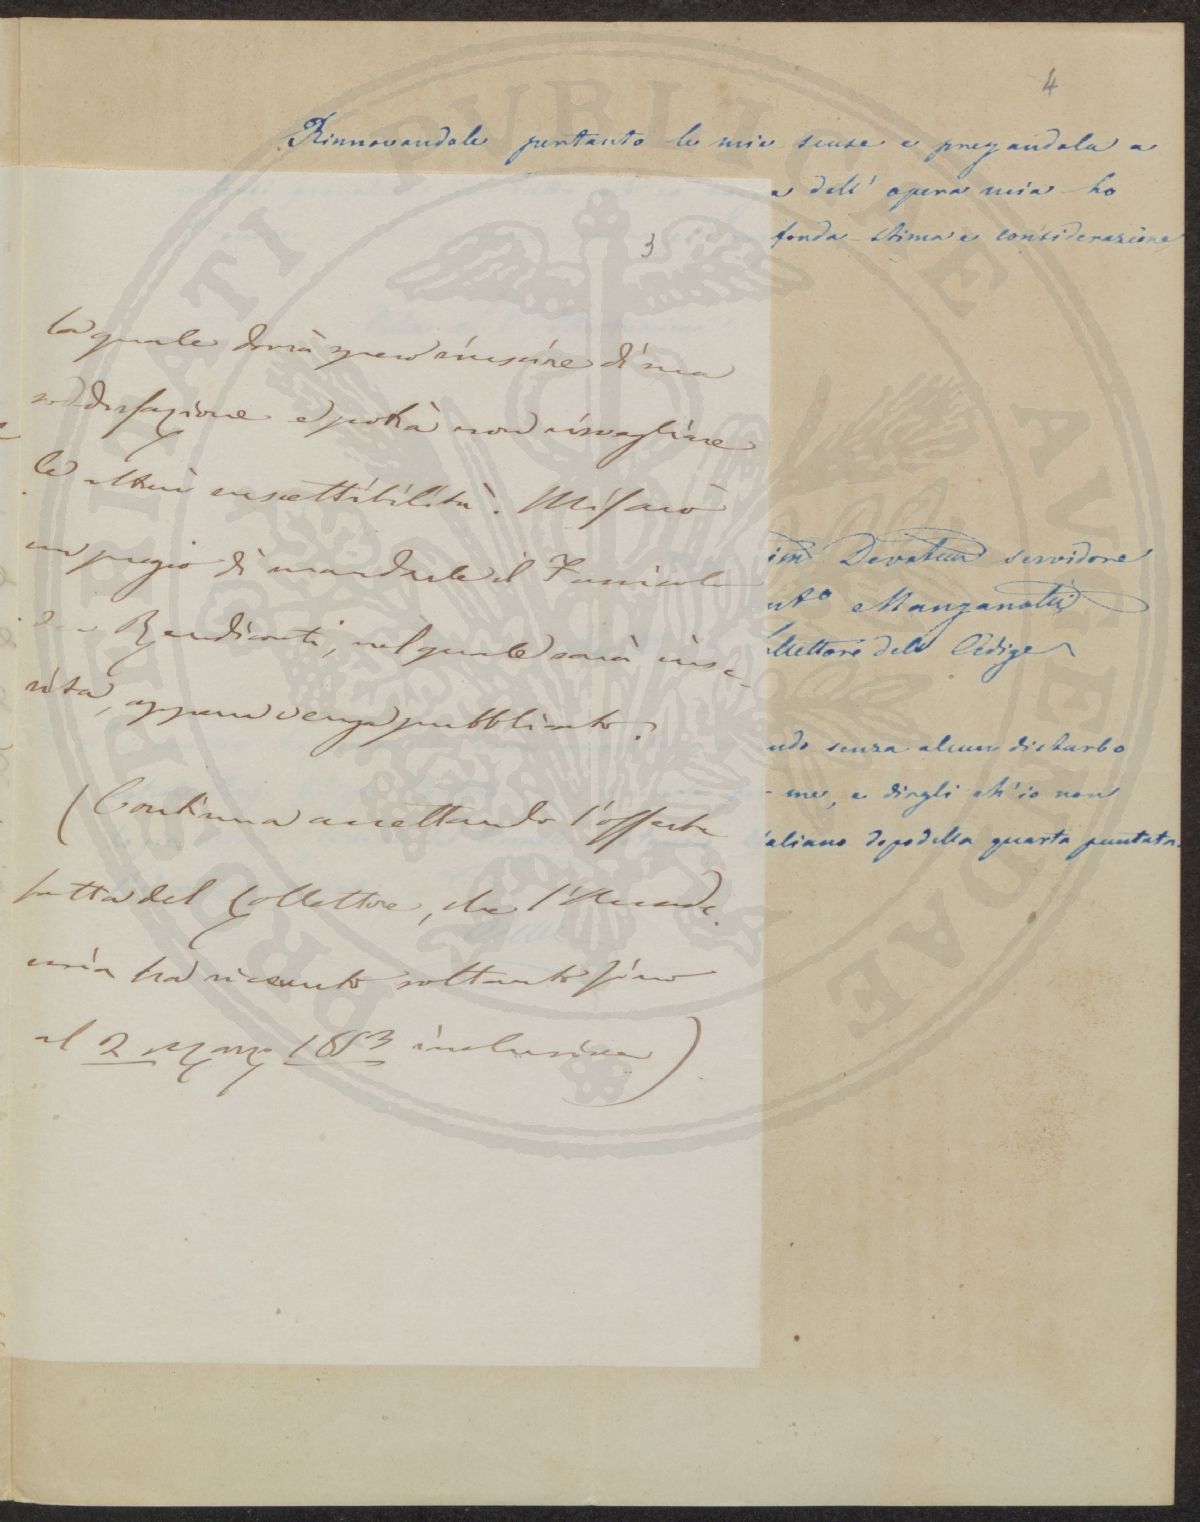 4
Rinnovandole pertanto le mie scuse e pregandola a
a dell' opera mia ho
fonda stima e considerazione
3
la quale dovrà spero riuscire di sua
soddisfazione e potrà non risvegliare
le altrui suscettibilità. Mi farò
un pregio di mandarle il Fascicolo
dei Rendiconti, nel quale sarà inse-
rita, appena venga pubblicato.
(Continua accettando l'offerta
fatta dal Collettore, che l'Accade
mia ha ricevuto soltanto fino
al 2 marzo 1853 inclusive)
Devotism servidore
Manganotti
dell' Adige
ndo senza alcun disturbo
me, e dirgli ch'io non
taliano dopo della quarta puntata.
PRIVATI PVBLICAE AVVENDAE